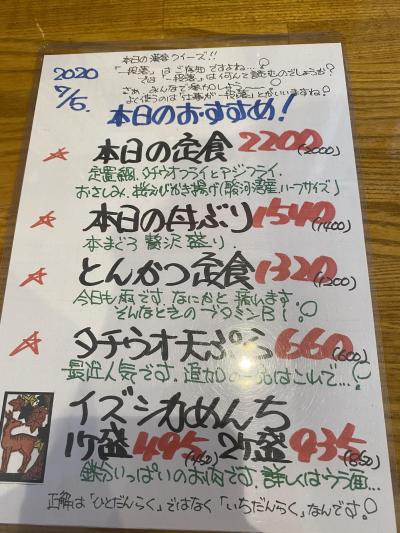 本日の漢字クイーズ!!
「一段落」はご存知ですよね…?
では「一段落」は何んて読むものでしょうか?
さぁ、みんなで考が
よく使うのは「仕事が一段落」とかいいますね!
2020
7/5.
本日のおすすめ!
☆ 本日の定食 2200(2000)
定置網、タチウオフライとアジフライ.
おさしみ、桜えびかき揚げ(駿河湾産、ハーフサイズ)
☆ 本日の丼ぶり 1540(1400)
本まぐろ 贅沢盛り.
☆ とんかつ定食 1320(1200)
今日も雨です。なにかと疲れます。
そんなときのブタキンB!
☆ タチウオ天ぷら 660(600)
最近人気です。追加の一品はこれで…?
イズシカめんち
1ケ盛 495(450) 2ケ盛 935(850)
鉄分いっぱいのお肉です。詳しくはウラ面…
正解は「ひとだんらく」ではなく「いちだんらく」なんです!